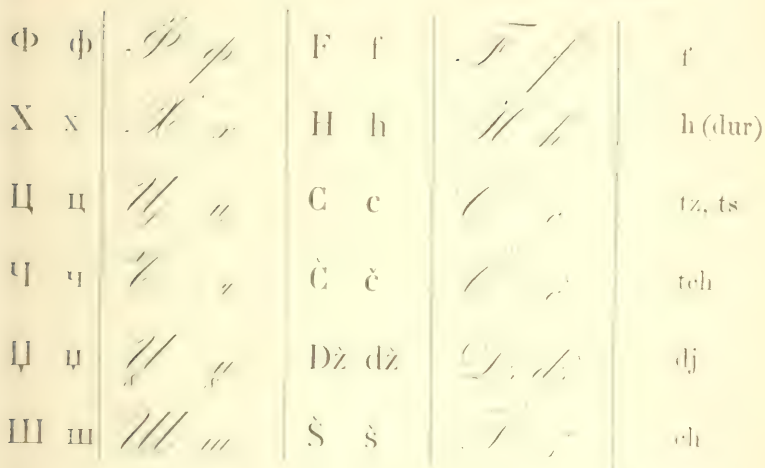 Ф ф Ф ф F f F f f
Х х Х х H h H h h (dur)
Ц ц Ц ц C c C c tz, ts
Ч ч Ч ч Č č Č č tch
Џ џ Џ џ Dž dž Dž dž dj
Ш ш Ш ш Š š Š š ch